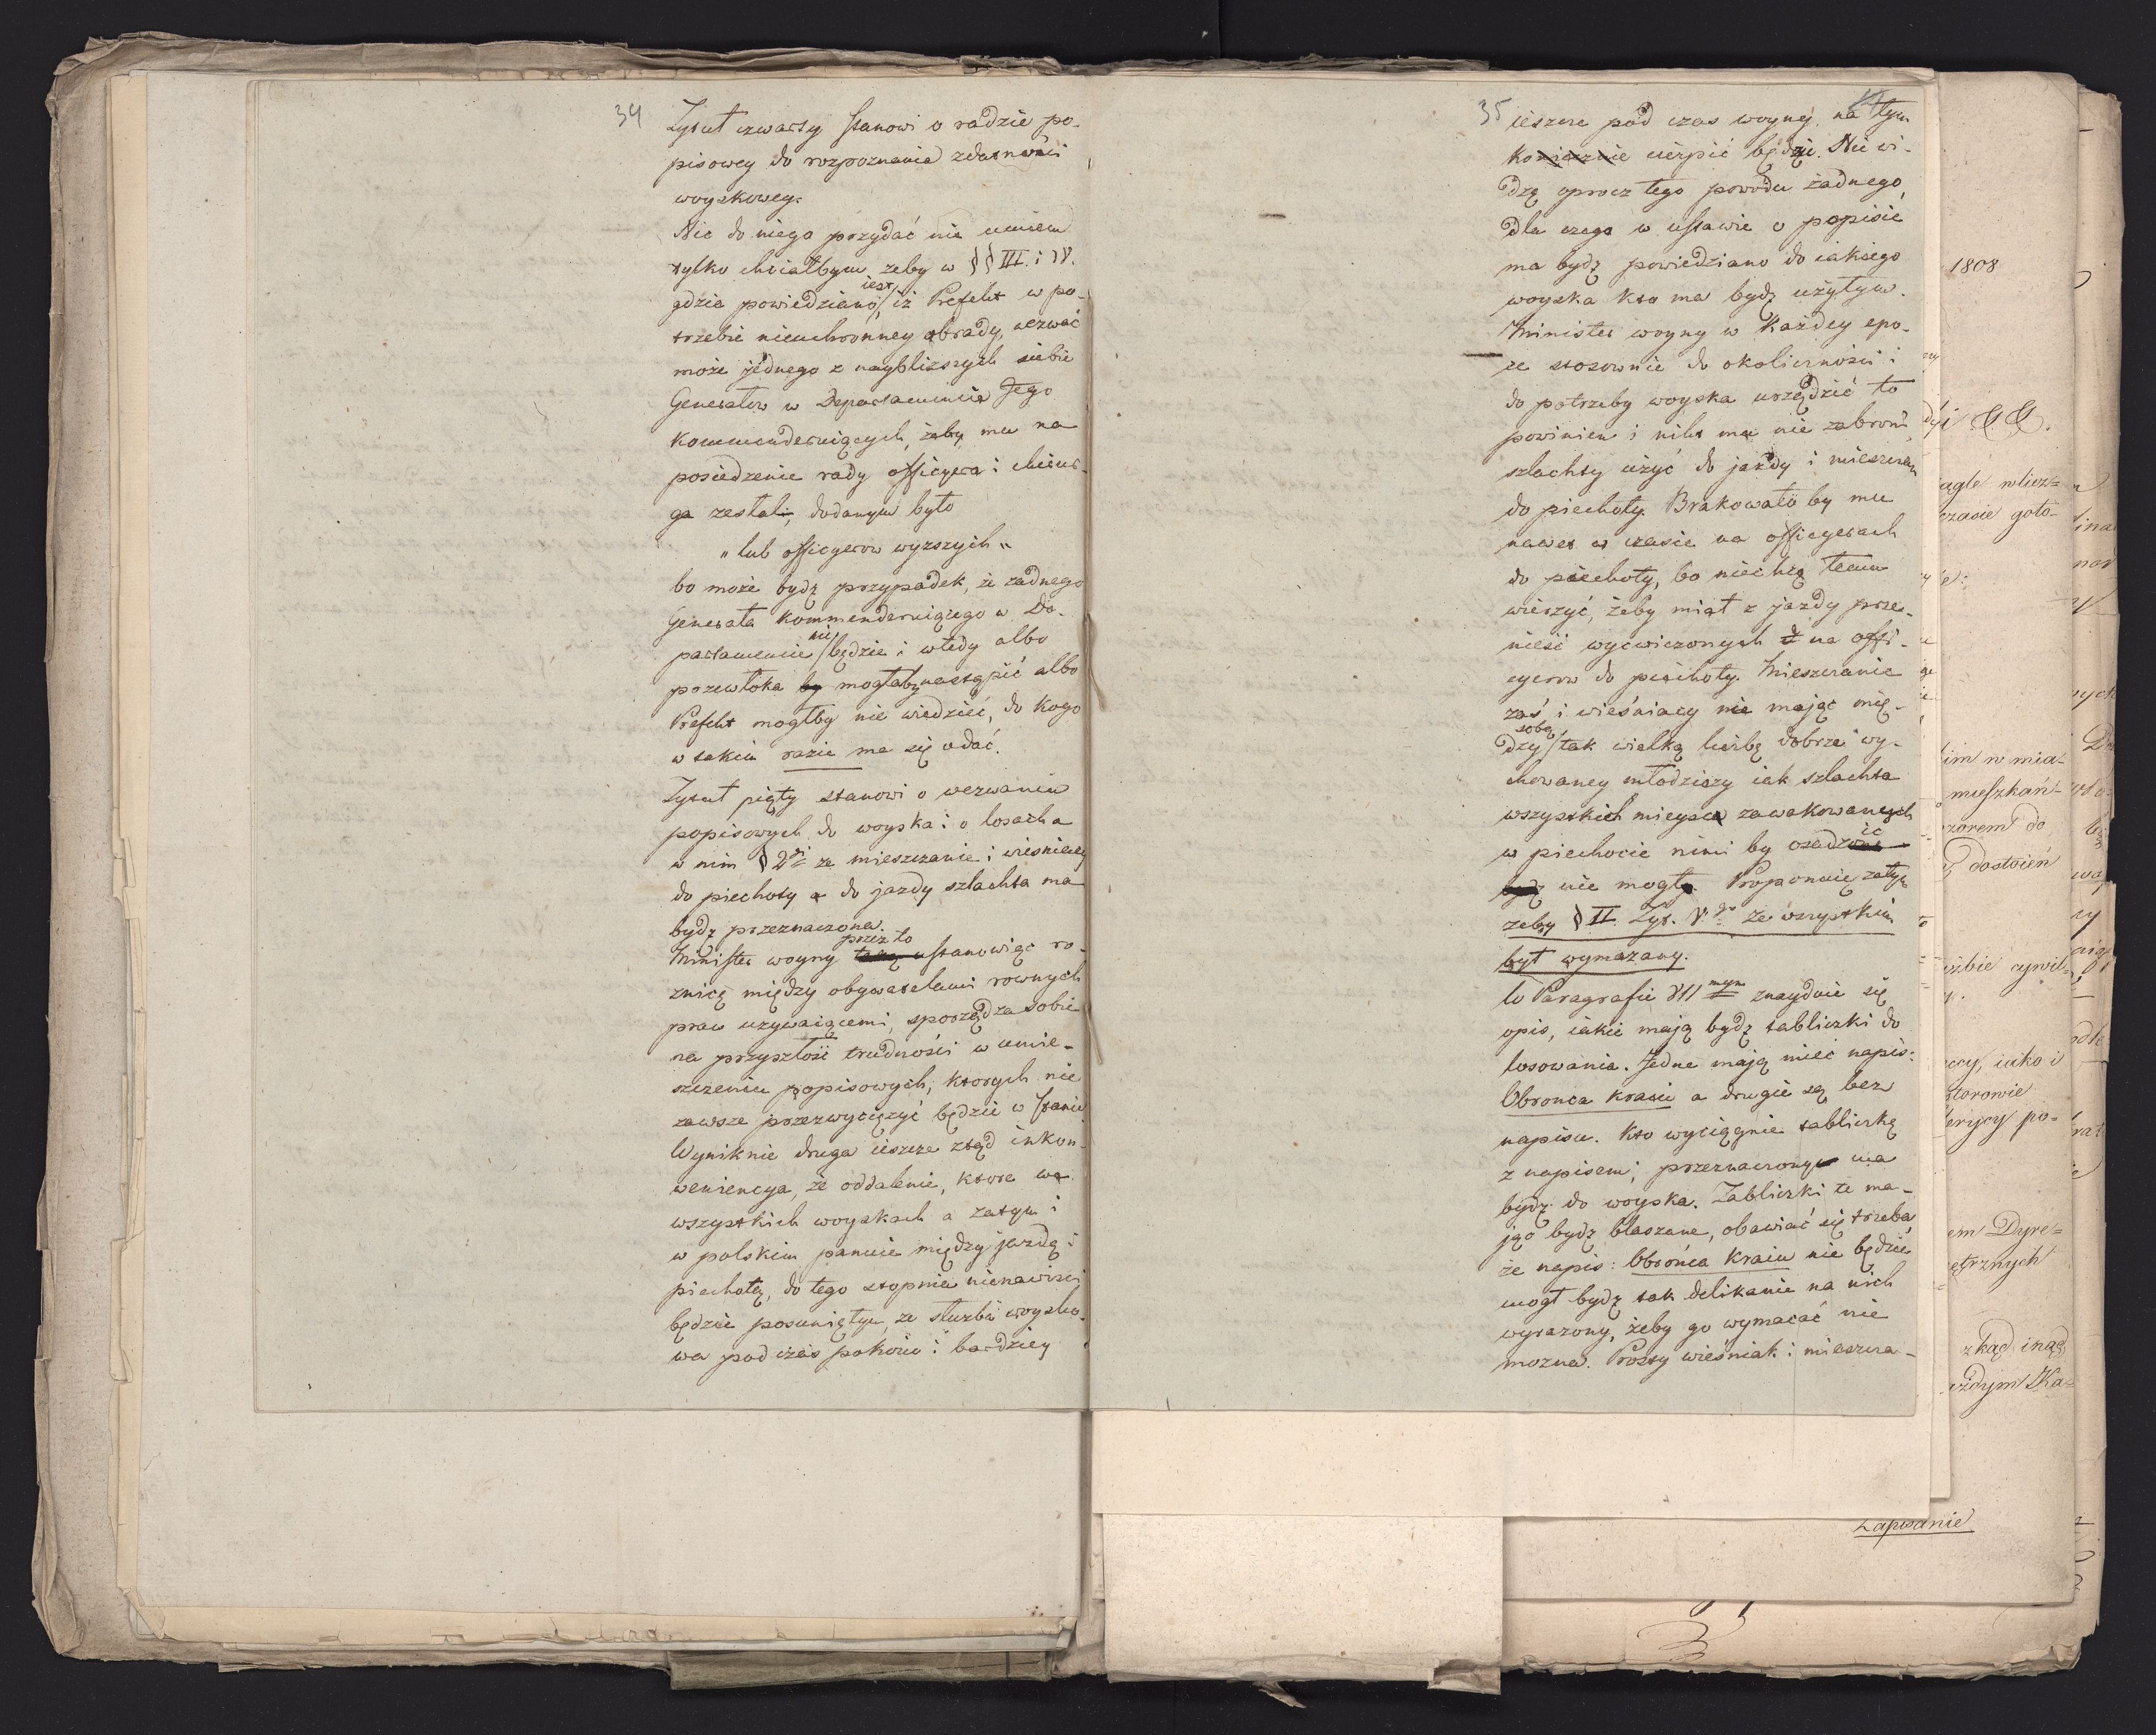 34
Tytuł czwarty stanowi o radzie po-
pisowey do rozpoznania zdatności
woyskowey.
Nic do niego przydać nie umiem
tylko chciałbym, żeby w §§ III. i IV.
gdzie powiedziano iest, iż Prefekt w po-
trzebie nieuchronney obrady, wezwać
może jednego z nayblizszych siebie
Generałow w Departamencie Jego
kommenderuiących, żeby mu na
posiedzenie rady officyera i chirur-
ga zesłał, dodanym było
„lub officyerow wyzszych„
bo może bydz przypadek, że zadnego
Generała kommenderuiącego w De-
partamencie nie będzie i wtedy albo
przewłoka by mogłaby nastąpić albo
Prefekt mogłby nie wiedzieć, do kogo
w takim razie ma się udać.
Tytuł piąty stanowi o wezwaniu
popisowych do woyska i o losach a
w nim § 2gi że mieszczanie i wieśniacy
do piechoty a do jazdy szlachta ma
bydz przeznaczona.
Minister woyny przez to ustanowiąc ro-
żnicę między obywatelami rownych
praw uzywaiącemi, sporządza sobie
na przyszłość trudności w umie-
szczeniu popisowych, ktorych nie
zawsze przezwyciężyć będzie w stanie
Wyniknie druga ieszcze ztąd inkon-
weniencya, że oddalenie, ktore we
wszystkich woyskach a zatym i
w polskim panuie między jazdą i
piechotą, do tego stopnia nienawiści
będzie posuniętym, ze służba woysko-
wa pod czas pokoiu i bardziey
35
ieszcze pod czas woyny, na tym
koniecznie cierpić będzie. Nie wi-
dzę oprocz tego powodu żadnego,
dla czego w ustawie o popisie
ma bydz powiedziano do iakiego
woyska kto ma bydz użytym.
Minister woyny w każdey epo-
ce stosownie do okoliczności i
do potrzeby woyska urządzić to
powinien i nikt mu nie zabroni
szlachty użyć do jazdy i mieszczan
do piechoty. Brakowało by mu
nawet w czasie na officyerach
do piechoty, bo nie chcę temu
wierzyć, żeby miał z jazdy prze-
nieść wycwiczonych na offi-
cyerow do piechoty. Mieszczanie
zaś i wieśniacy nie mając mię-
dzy sobą tak wielką liczbę dobrze wy-
chowaney młodzieży iak szlachta
wszystkich mieysc zawakowanych
w piechocie nimi by osadzić
bydz nie mogła. Proponuię zatym
zeby § II Tyt. V.go ze wszystkim
był wymazany.
W Paragrafie VIImym znayduie się
opis, iakie mają bydz tabliczki do
losowania. Jedne mają mieć napis:
Obronca kraiu a drugie są bez
napisu. Kto wyciągnie tabliczkę
z napisem, przeznaczonym ma
bydz do woyska. Tabliczki te ma-
jąc bydz blaszane, obawiać się trzeba,
że napis: Obrońca Kraiu nie będzie
mogł bydz tak delikanie na nich
wyrazony, żeby go wymacać nie
mozna. Prosty wieśniak i mieszcza-
1808
agle wlicz=
czasie goto-
im w mia-
mieszkań-
zorem do
dostoień
użbie cywil=
iako i
storowie
po-
em Dyre=
ętrznych
zkąd inąd
Ka=
Zapisanie